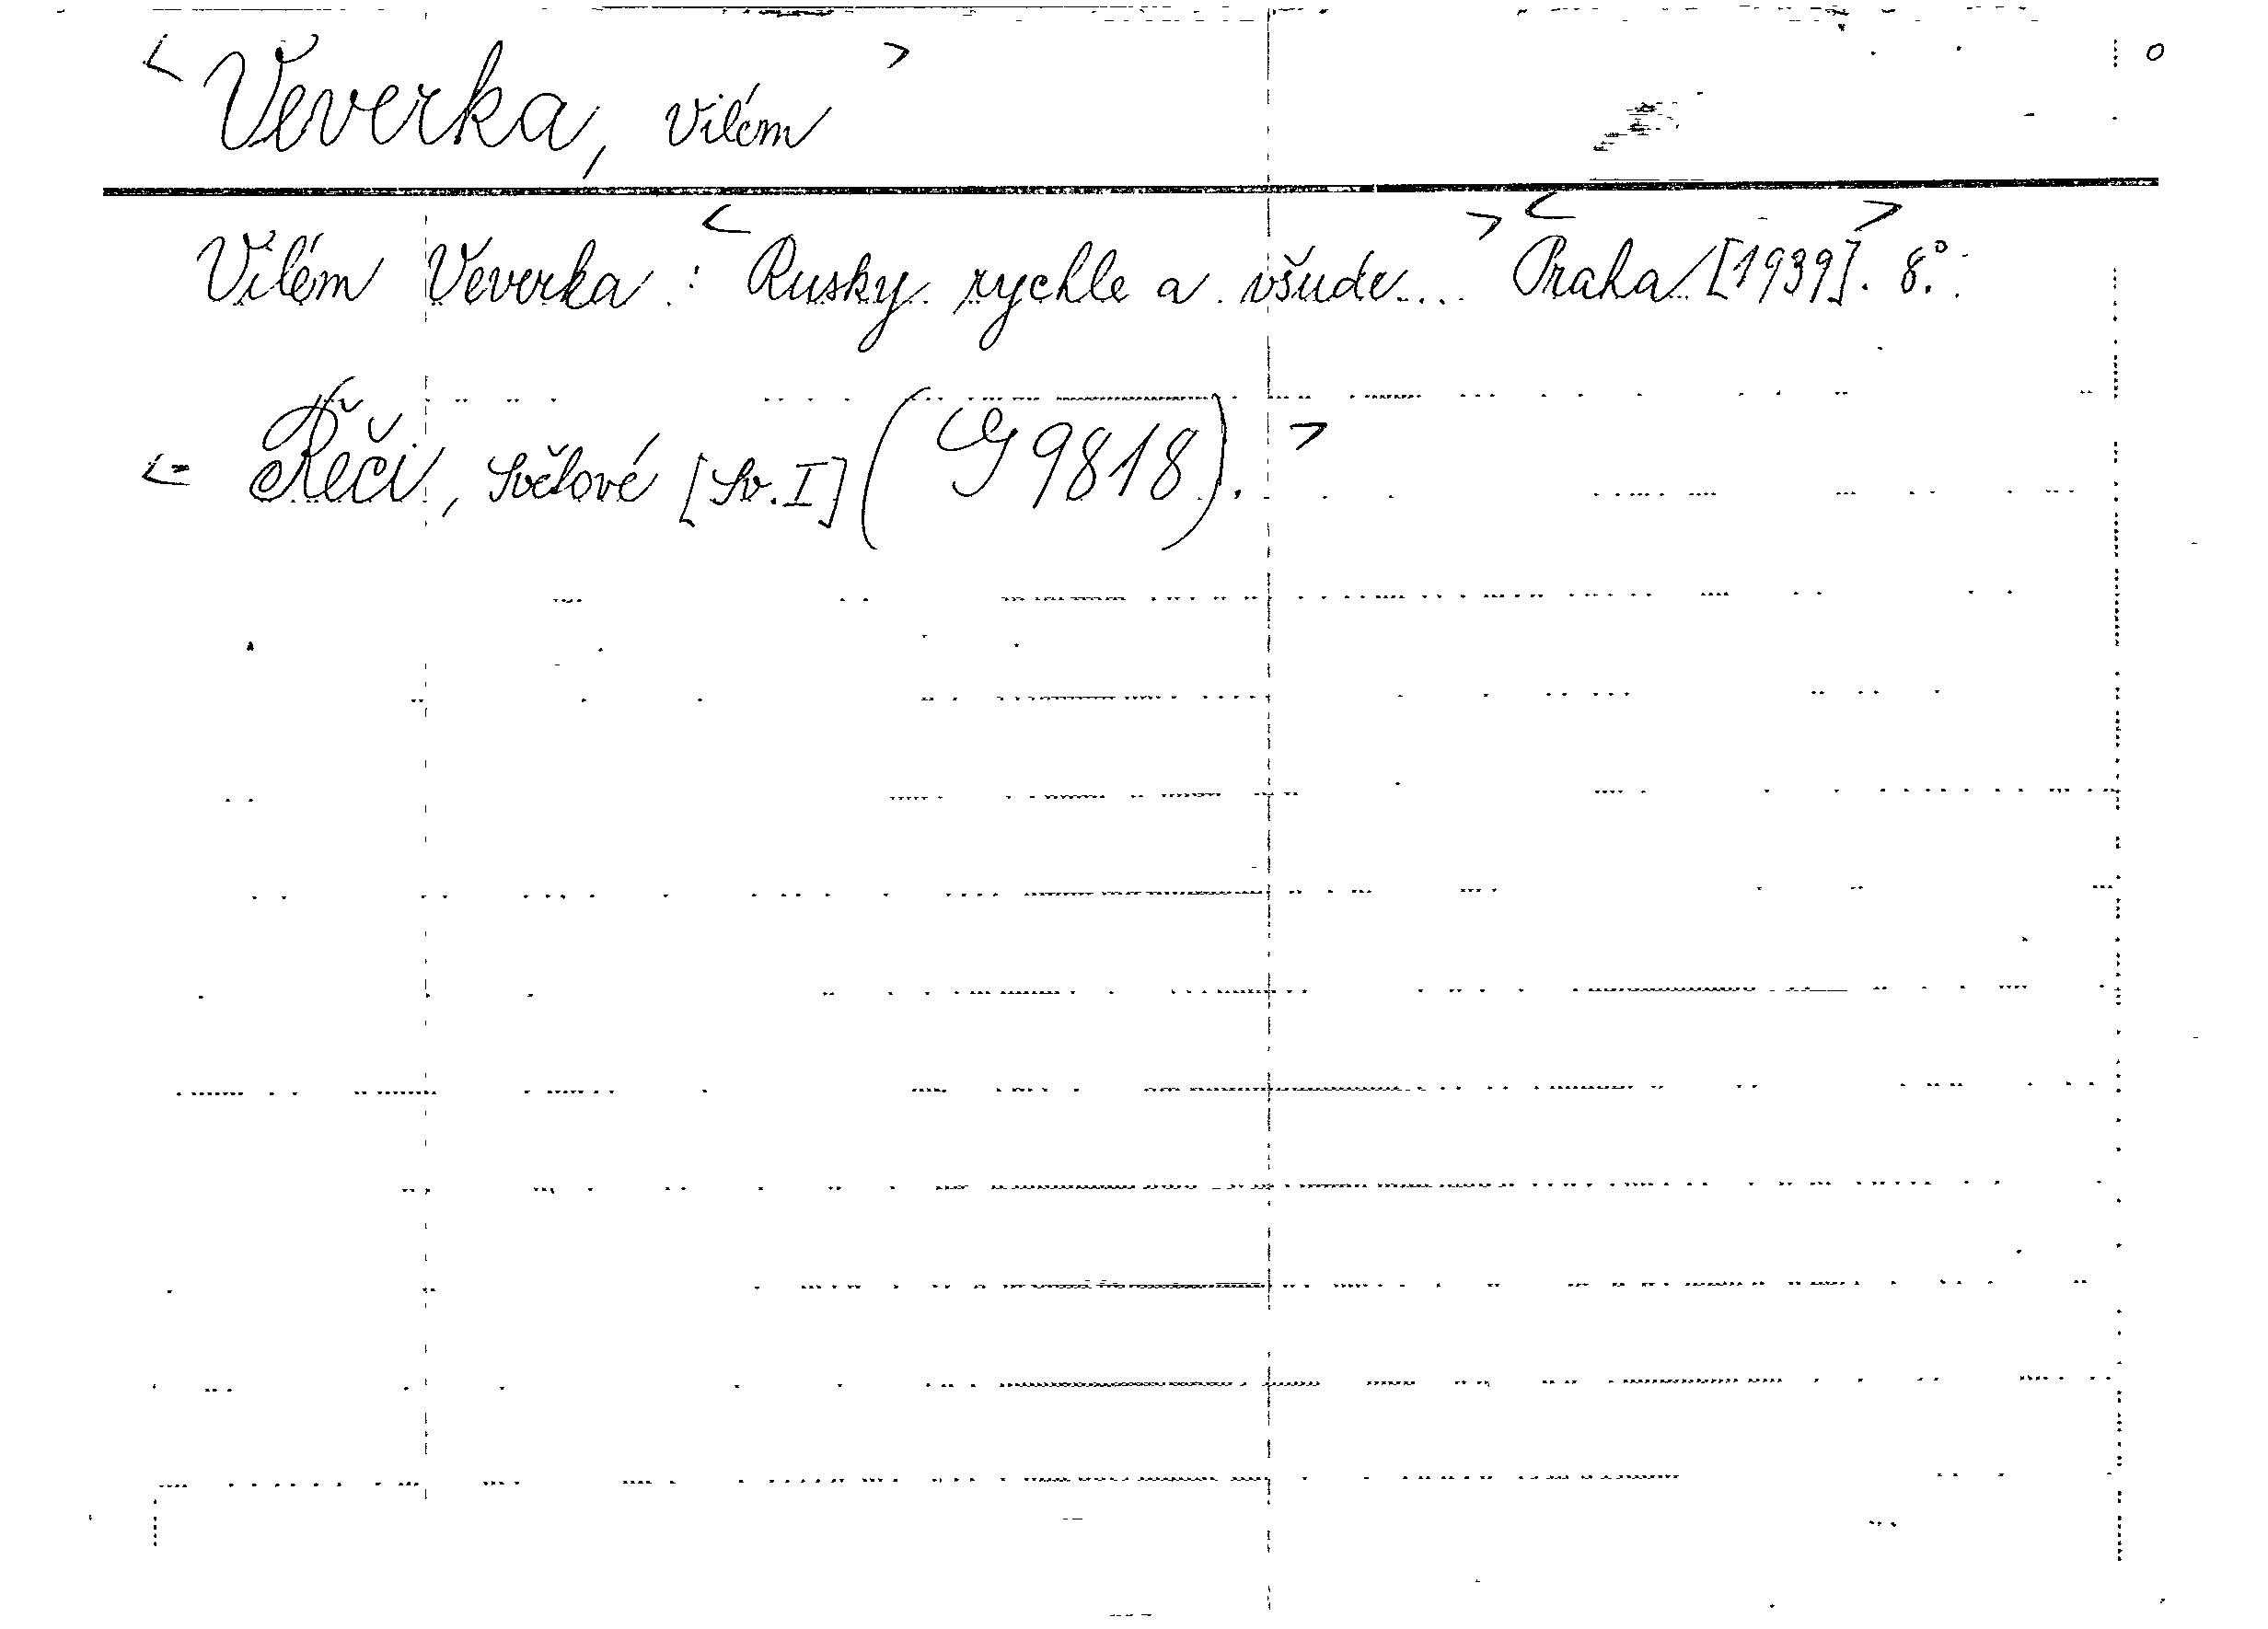 <Veverka, Vilém> o
Vilém Veverka : <Rusky rychle a všude...> <Praha> [1939]. 8°.
<= Řeči, Světové [Sv. I] (G 9818).>